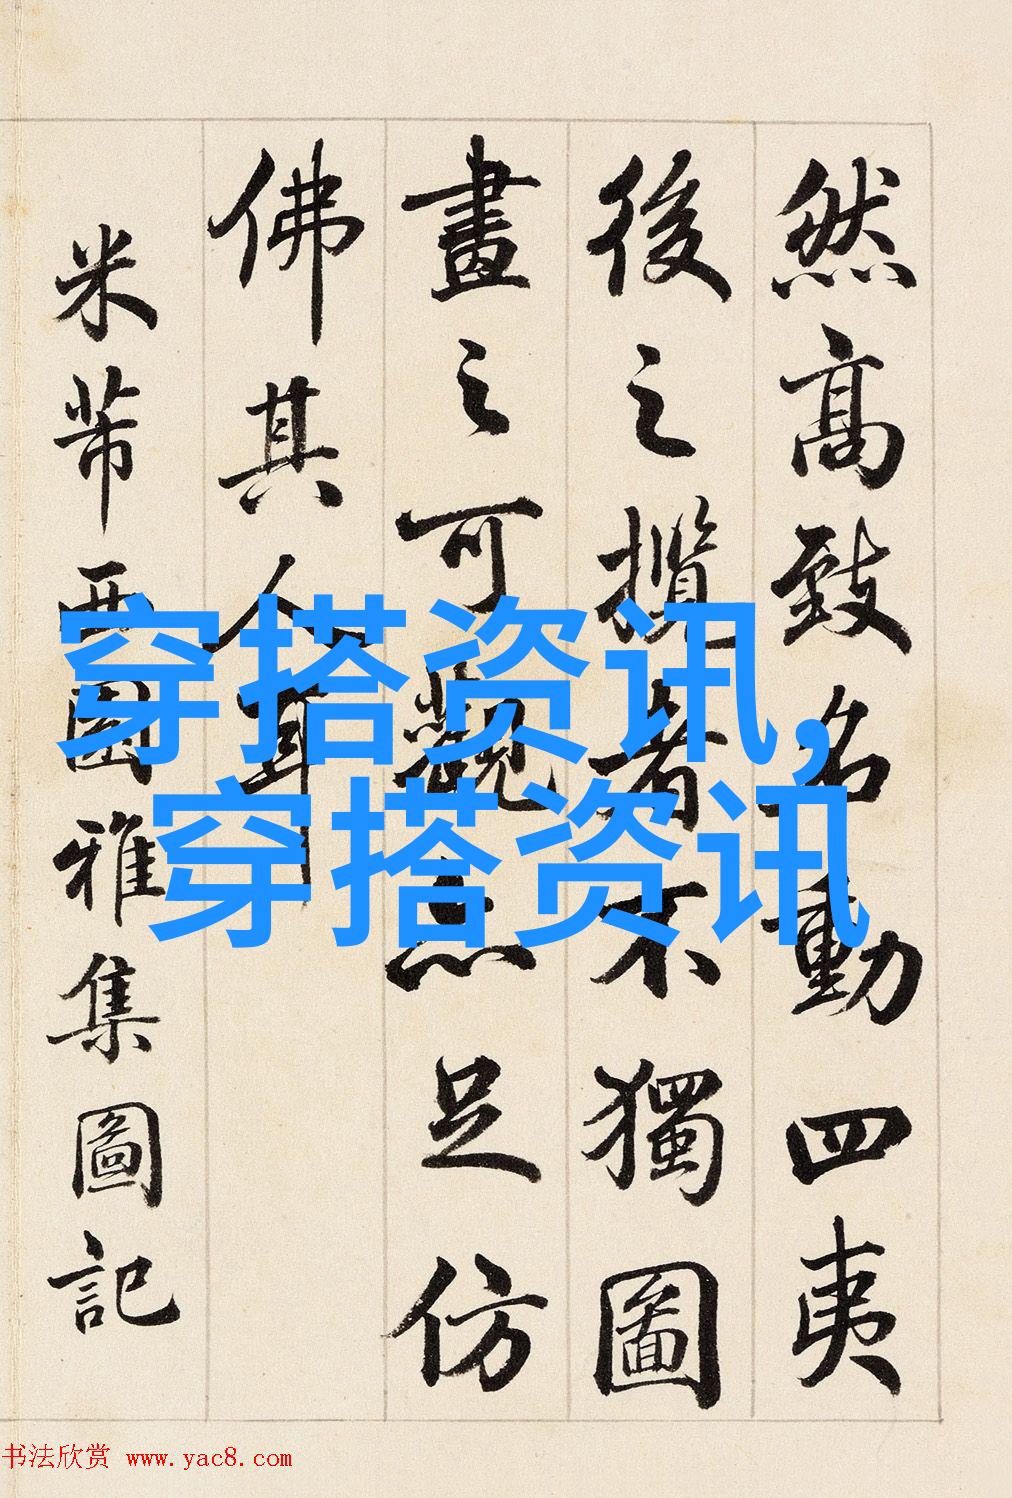 然高致名動四夷
後之攬者不獨圖
畫之可觀亦足仿
佛其人耳
米芾西園雅集圖記
穿搭资讯,
穿搭资讯
书法欣赏 www.yac8.com